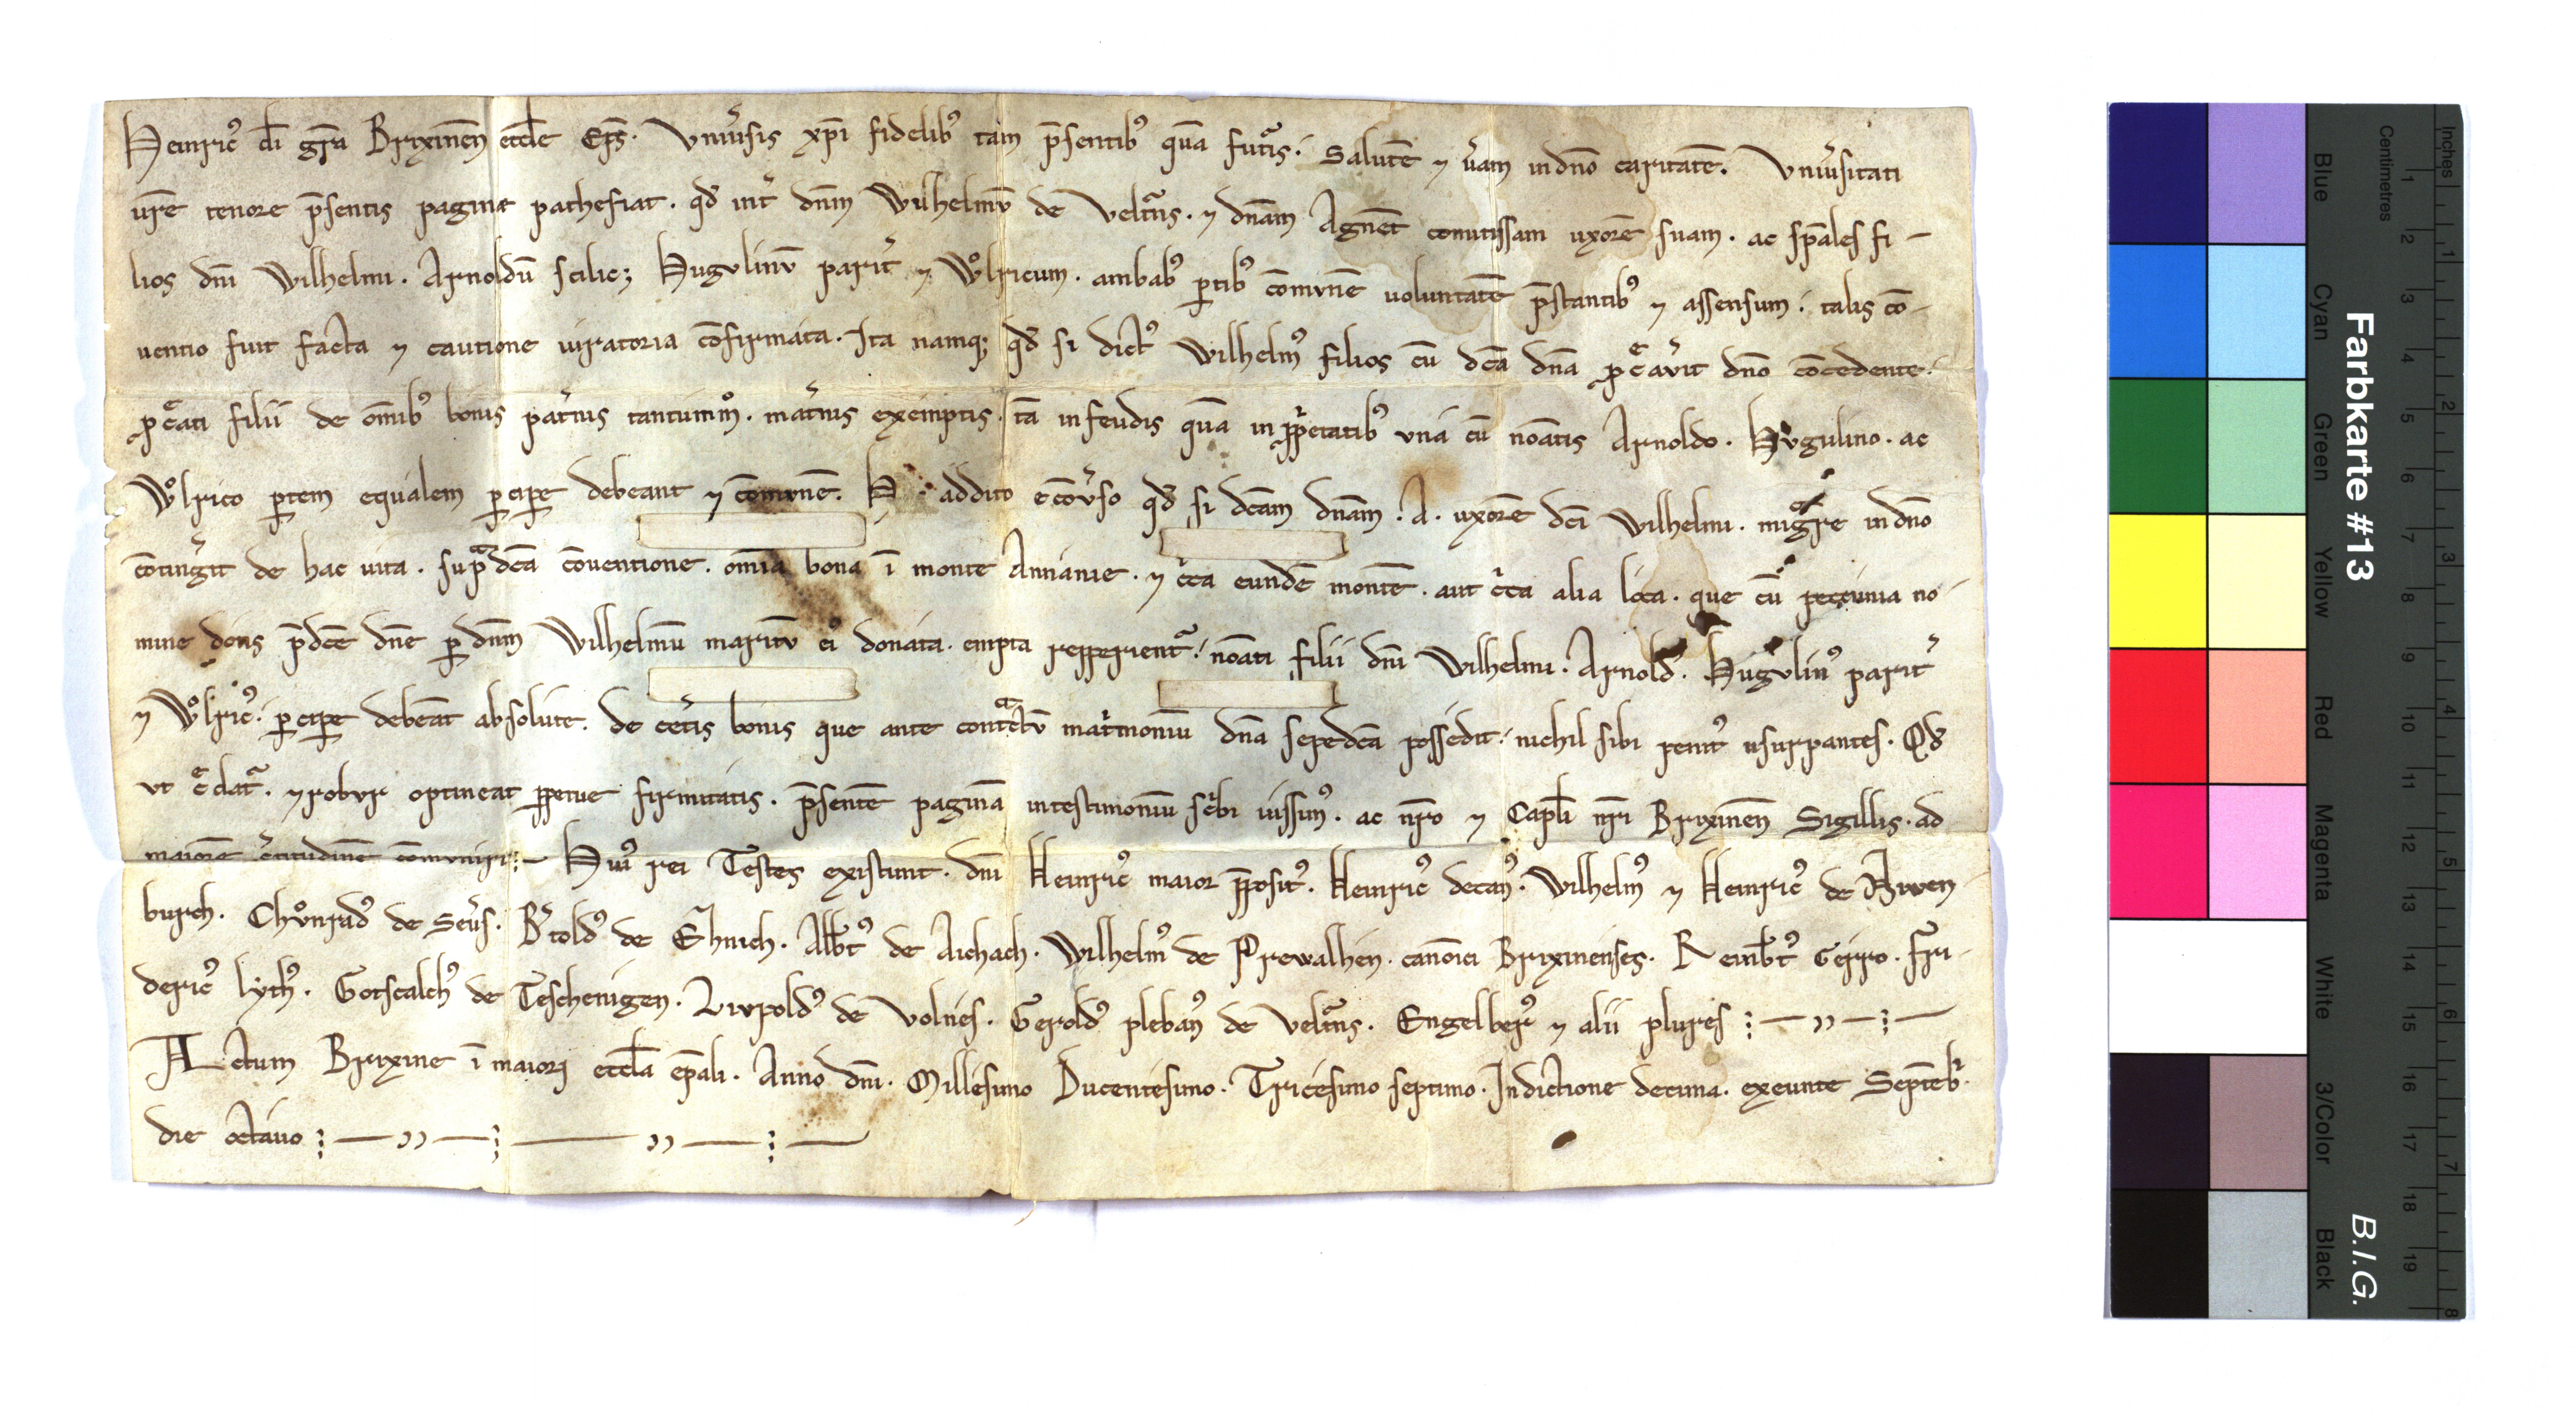 Heinric᷒ di gr̄a Brixinen̄ eccl̄e Ep̄s. Vniu̓sis xp̄i fidelib᷒ tam p̄sentib᷒ quā futur̓is. Salutē ⁊ u̓am in dn̄o caritatē. Vniu̓sitati
ur̄e tenore p̄sentis pagine pathefiat. qđ int̓ dn̄m Wilhelmv̄ de Veltu̓ns. ⁊ dn̄am Agnet̄ comitissam uxorē suam. ac sp̄ales fi-
lios dn̄i Wilhelmi. Arnoldū scilicꝫ Hugvlinv̄ parit̓ ⁊ Wͦlricum. ambab᷒ ꝑtib᷒ cōmvnē uoluntatē p̄stantib᷒ ⁊ assensum. talis cō-
uentio fuit facta ⁊ cautione iuratoria cōfirmata. Ita namqꝫ qđ si dict᷒ Wilhelm᷒ filios cū dc̄a dn̄a ꝓc̄av̓it dn̄o cōcedente.
ꝓc̄ati filii de om̄ib᷒ bonis pat̓nis tantummͦ. mat̓nis exemptis. tā in feudis quā in ꝓp̓etatib᷒ vna cū noīatis Arnoldo. Hvgulino. ac
Wͦlrico ꝑtem equalem ꝑcipe debeant ⁊ cōmvnē. addito ecōv̓so qđ si dc̄am dn̄am. A. uxorē dc̄i Wilhelmi. migͣre in dn̄o
cōting̓it de hac uita. sup̄dc̄a cōuentione. om̄ia bona ī monte Annanie. ⁊ c̓ca eundē montē. aut c̓ca alia loca. que cū peccunia no-
mine dotis p̄dc̄e dn̄e ꝑ dn̄m Wilhelmū maritv̄ ei᷒ donata. empta repperient̓. noīati filii dn̄i Wilhelmi. Arnold᷒. Hugvlin᷒ parit̓
⁊ Wͦlric᷒. ꝑcipe debeāt absolute. de cet̓is bonis que ante contͣctv̄ mat̓moniū dn̄a sepedc̄a possedit. nichil sibi penit᷒ usurpantes. Qđ
vt c̄dat̓. ⁊ robvr optineat ꝑpetue firmitatis. p̄sentē paginā in testimoniū sc̓bi iussim᷒. ac nr̄o ⁊ Capl̄i nr̄i Brixinen̄ Sigillis. ad
maiorē c̓titudinē cōmvniri:— Hui᷒ rei Testes existunt. dn̄i Heinric᷒ maior p̄posit᷒. Heinric᷒ decan᷒. Wilhelm᷒ ⁊ Heinric᷒ de Arwen-
burch. Chvͦnrad᷒ de Seu̓s. B̓told᷒ de Ehinch. Alb̄t᷒ de Aichach. Wilhelm᷒ de Prewalhen. canōici Brixinenses. Reinb̄t᷒ Geiro. Fri-
deric᷒ lych᷒. Gotscalch᷒ de Teschenigen. Livpold᷒ de Volnes. Gerold᷒ pleban᷒ de Veltu̓ns. Engelber᷒ ⁊ alii plures :—,,—:—
Actum Brixine ī maiori eccl̄a ep̄ali. Anno dn̄i. Millesimo Ducentesimo. Tricesimo septimo. Indictione decima. exeunte Septēb̓.
die octauo :—,,—:—,,—:—
Farbkarte #13 B.I.G.
Inches 1 2 3 4 5 6 7 8
Centimetres 1 2 3 4 5 6 7 8 9 10 11 12 13 14 15 16 17 18 19
Blue Cyan Green Yellow Red Magenta White 3/Color Black